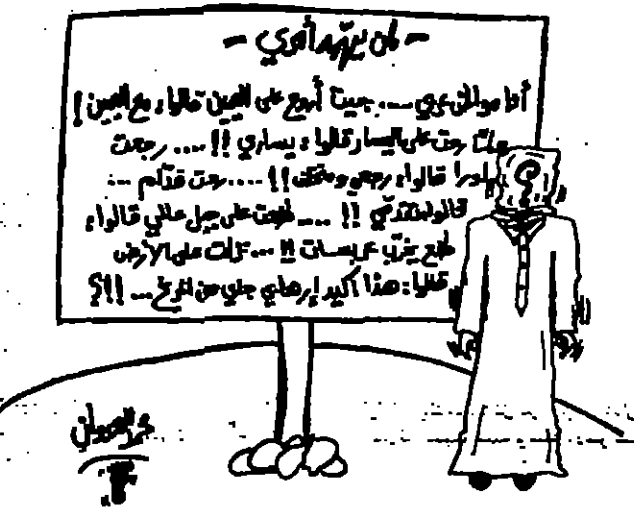 - لمن يهمه أمري -
أنا مواطن عربي .... جيت أروح على اليمين قالوا: مع اليمين!
رحت على اليسار قالوا: يساري !! .... رجعت
لورا قالوا: رجعي ومتخلف !! .... رحت قدّام ...
قالوا: تقدّمي !! .... طلعت على جبل عالي قالوا:
طلع يخرّب ع !! ... نزلت على الأرض
قالوا: هذا أكيد إرهابي جاي من ... !!؟
محمد